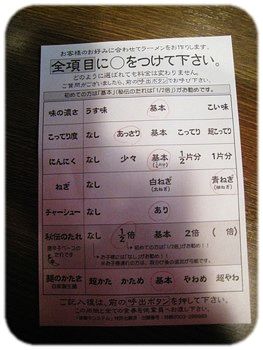 お客様のお好みに合わせてラーメンをお作りします。
全項目に○をつけて下さい。
どのように選ばれても料金は変わりません。
ご質問がございましたら、前の呼出ボタンでお呼び下さい。
初めての方は「基本」(秘伝のたれは「1/2倍」)がお勧めです。
味の濃さ うす味 基本 こい味
こってり度 なし あっさり 基本 こってり 超こってり
にんにく なし 少々 基本 1/2片分 1片分
ねぎ なし 白ねぎ 青ねぎ
チャーシュー なし あり
秘伝のたれ なし 1/2倍 基本 2倍 ( 倍)
初めての方は「1/2倍」がお勧めです!
麺のかたさ 超かた かため 基本 やわめ 超やわ
ご記入後は、前の呼出ボタンを押して下さい。